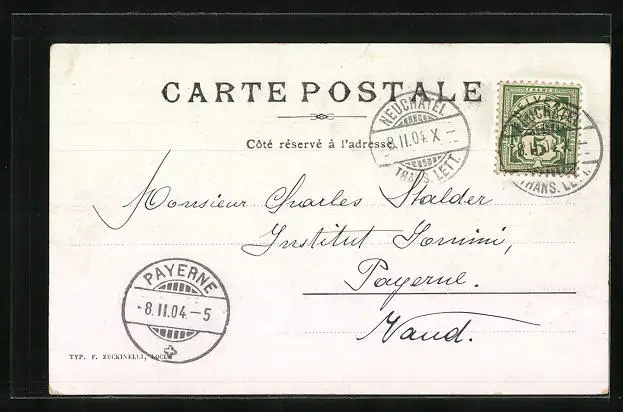 CARTE POSTALE
Côté réservé à l'adresse
NEUCHATEL
8.II.04.X
TRANS. LETT.
FRANCO
HELVETIA
5
NEUCHATEL
8.II.04
TRANS. LETT.
Monsieur Charles Stalder
Institut Jomini,
Payerne.
Vaud.
PAYERNE
-8.II.04.-5
TYP. F. ZUCKINELLI, LOCLE